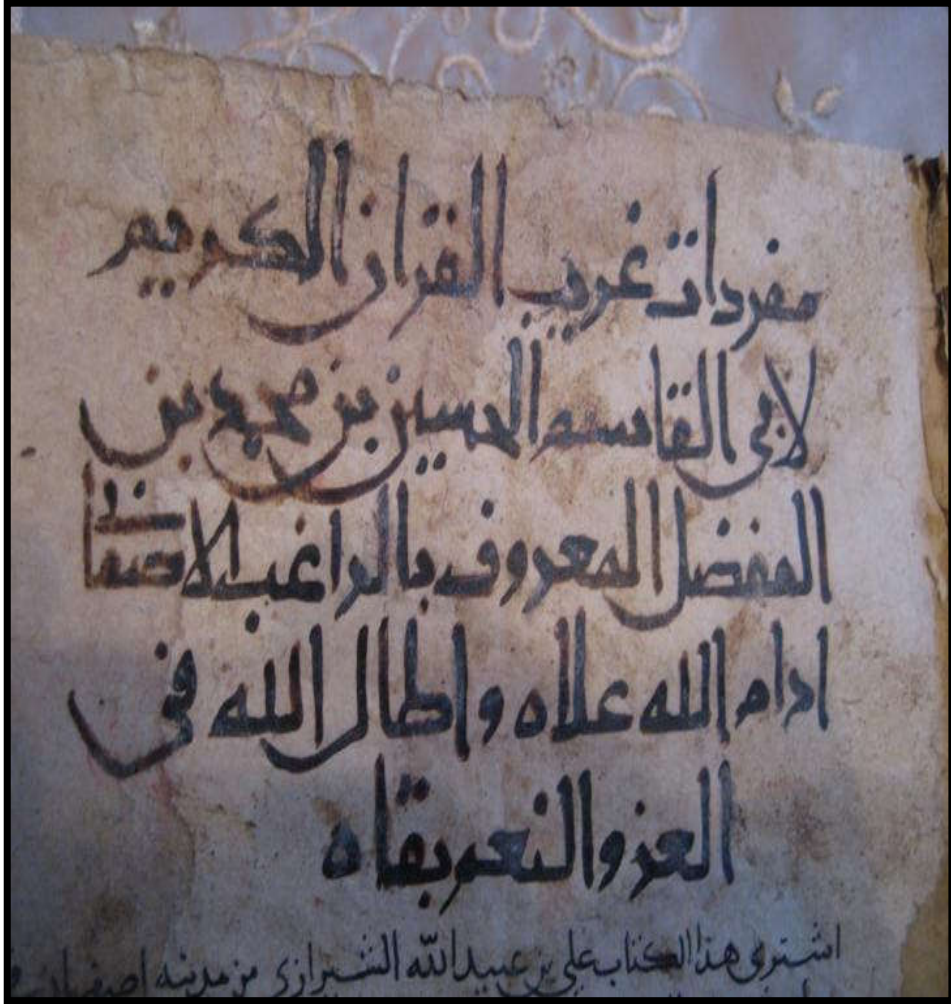 مفردات غريب القران الكريم
لابي القاسم الحسين بن محمد بن
المفضل المعروف بالراغب الاصفها
ادام الله علاه واطال الله في
العز والنعم بقاه
اشترى هذا الكتاب علي بن عبيد الله الشيرازي من مدينه اصفهان